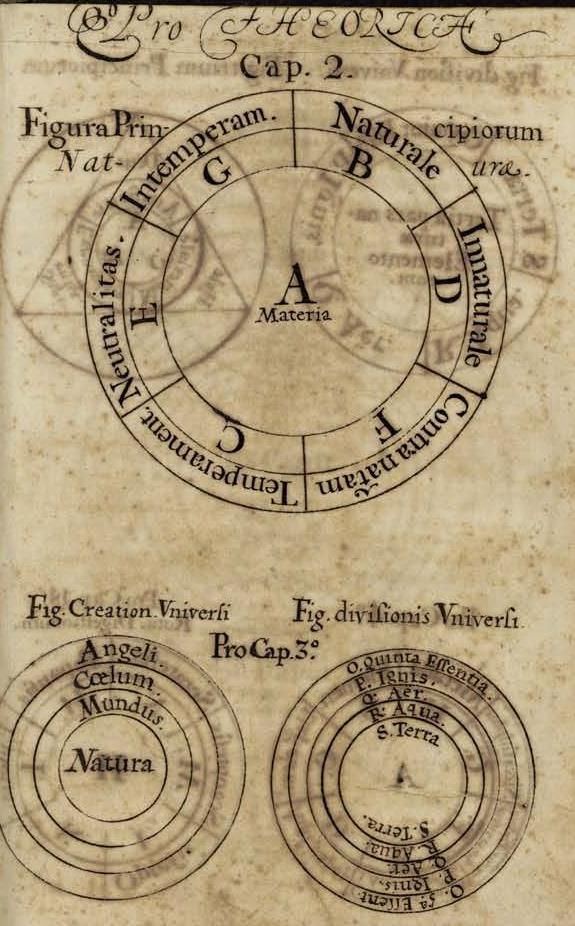 Pro THEORICA
Cap. 2.
Figura Prin- cipiorum
Nat- uræ.
Naturale
B
Innaturale
D
Contra nãtam
F
Temperament.
C
Neutralitas.
E
Intemperam.
G
A
Materia
Fig. Creation Vniversi
Fig. divisionis Vniversi.
Pro Cap. 3º
Angeli.
Cœlum.
Mundus.
Natura
O. Quinta Essentia.
P. Ignis.
Q. Aër.
R. Aqua.
S. Terra
A
S. Terra.
R. Aqua.
Q. Aer.
P. Ignis.
O. 5ª Essent.